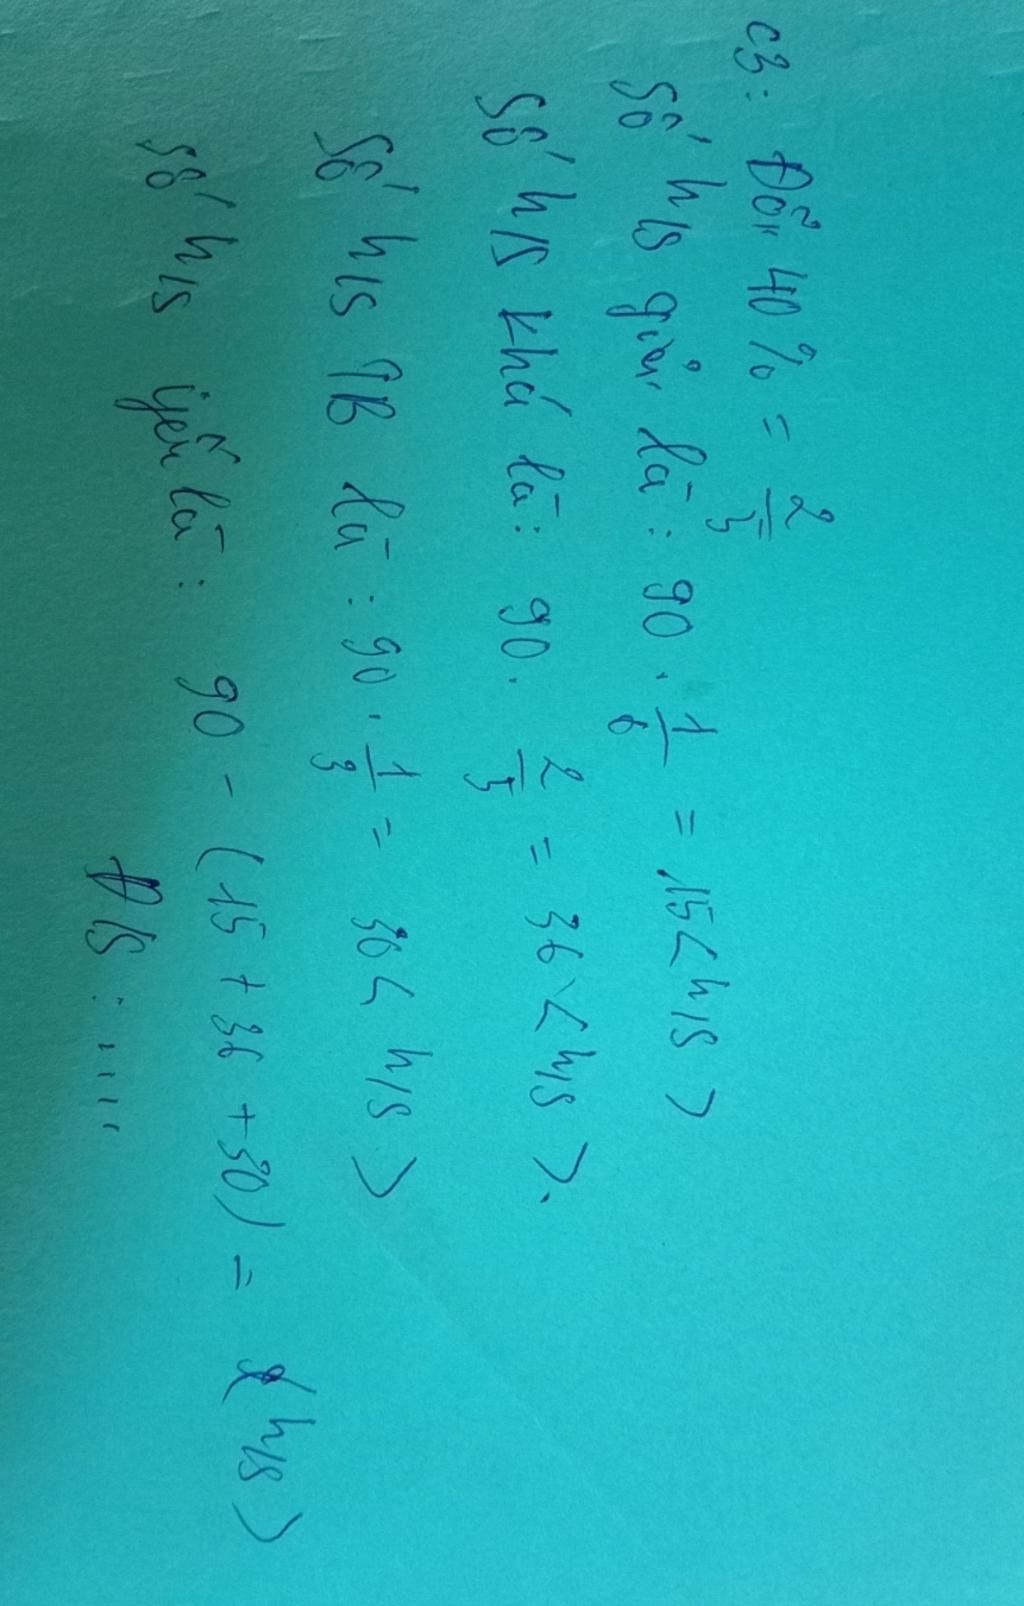 C3: Đổi 40% = 2/5
Số h/s giỏi là: 90 . 1/6 = 15 < h/s >
Số h/s khá là: 90 . 2/5 = 36 < h/s >.
Số h/s TB là : 90 . 1/3 = 30 < h/s >
Số h/s yếu là : 90 - (15 + 36 + 30) = < h/s >
Đ/S : .....